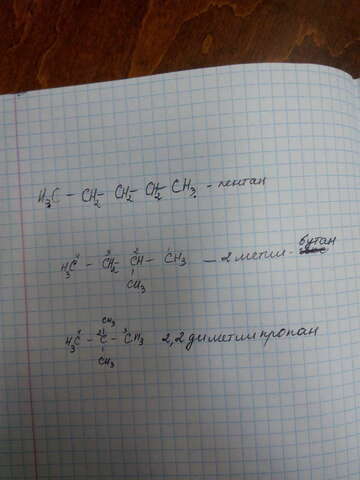 H₃C - CH₂ - CH₂ - CH₂ - CH₃ - пентан
H₃C⁴ - ³CH₂ - ²CH - ¹CH₃ - 2 метил - бутан
CH₃
CH₃
H₃C¹ - ²C - ³CH₃ 2,2 диметил пропан
CH₃